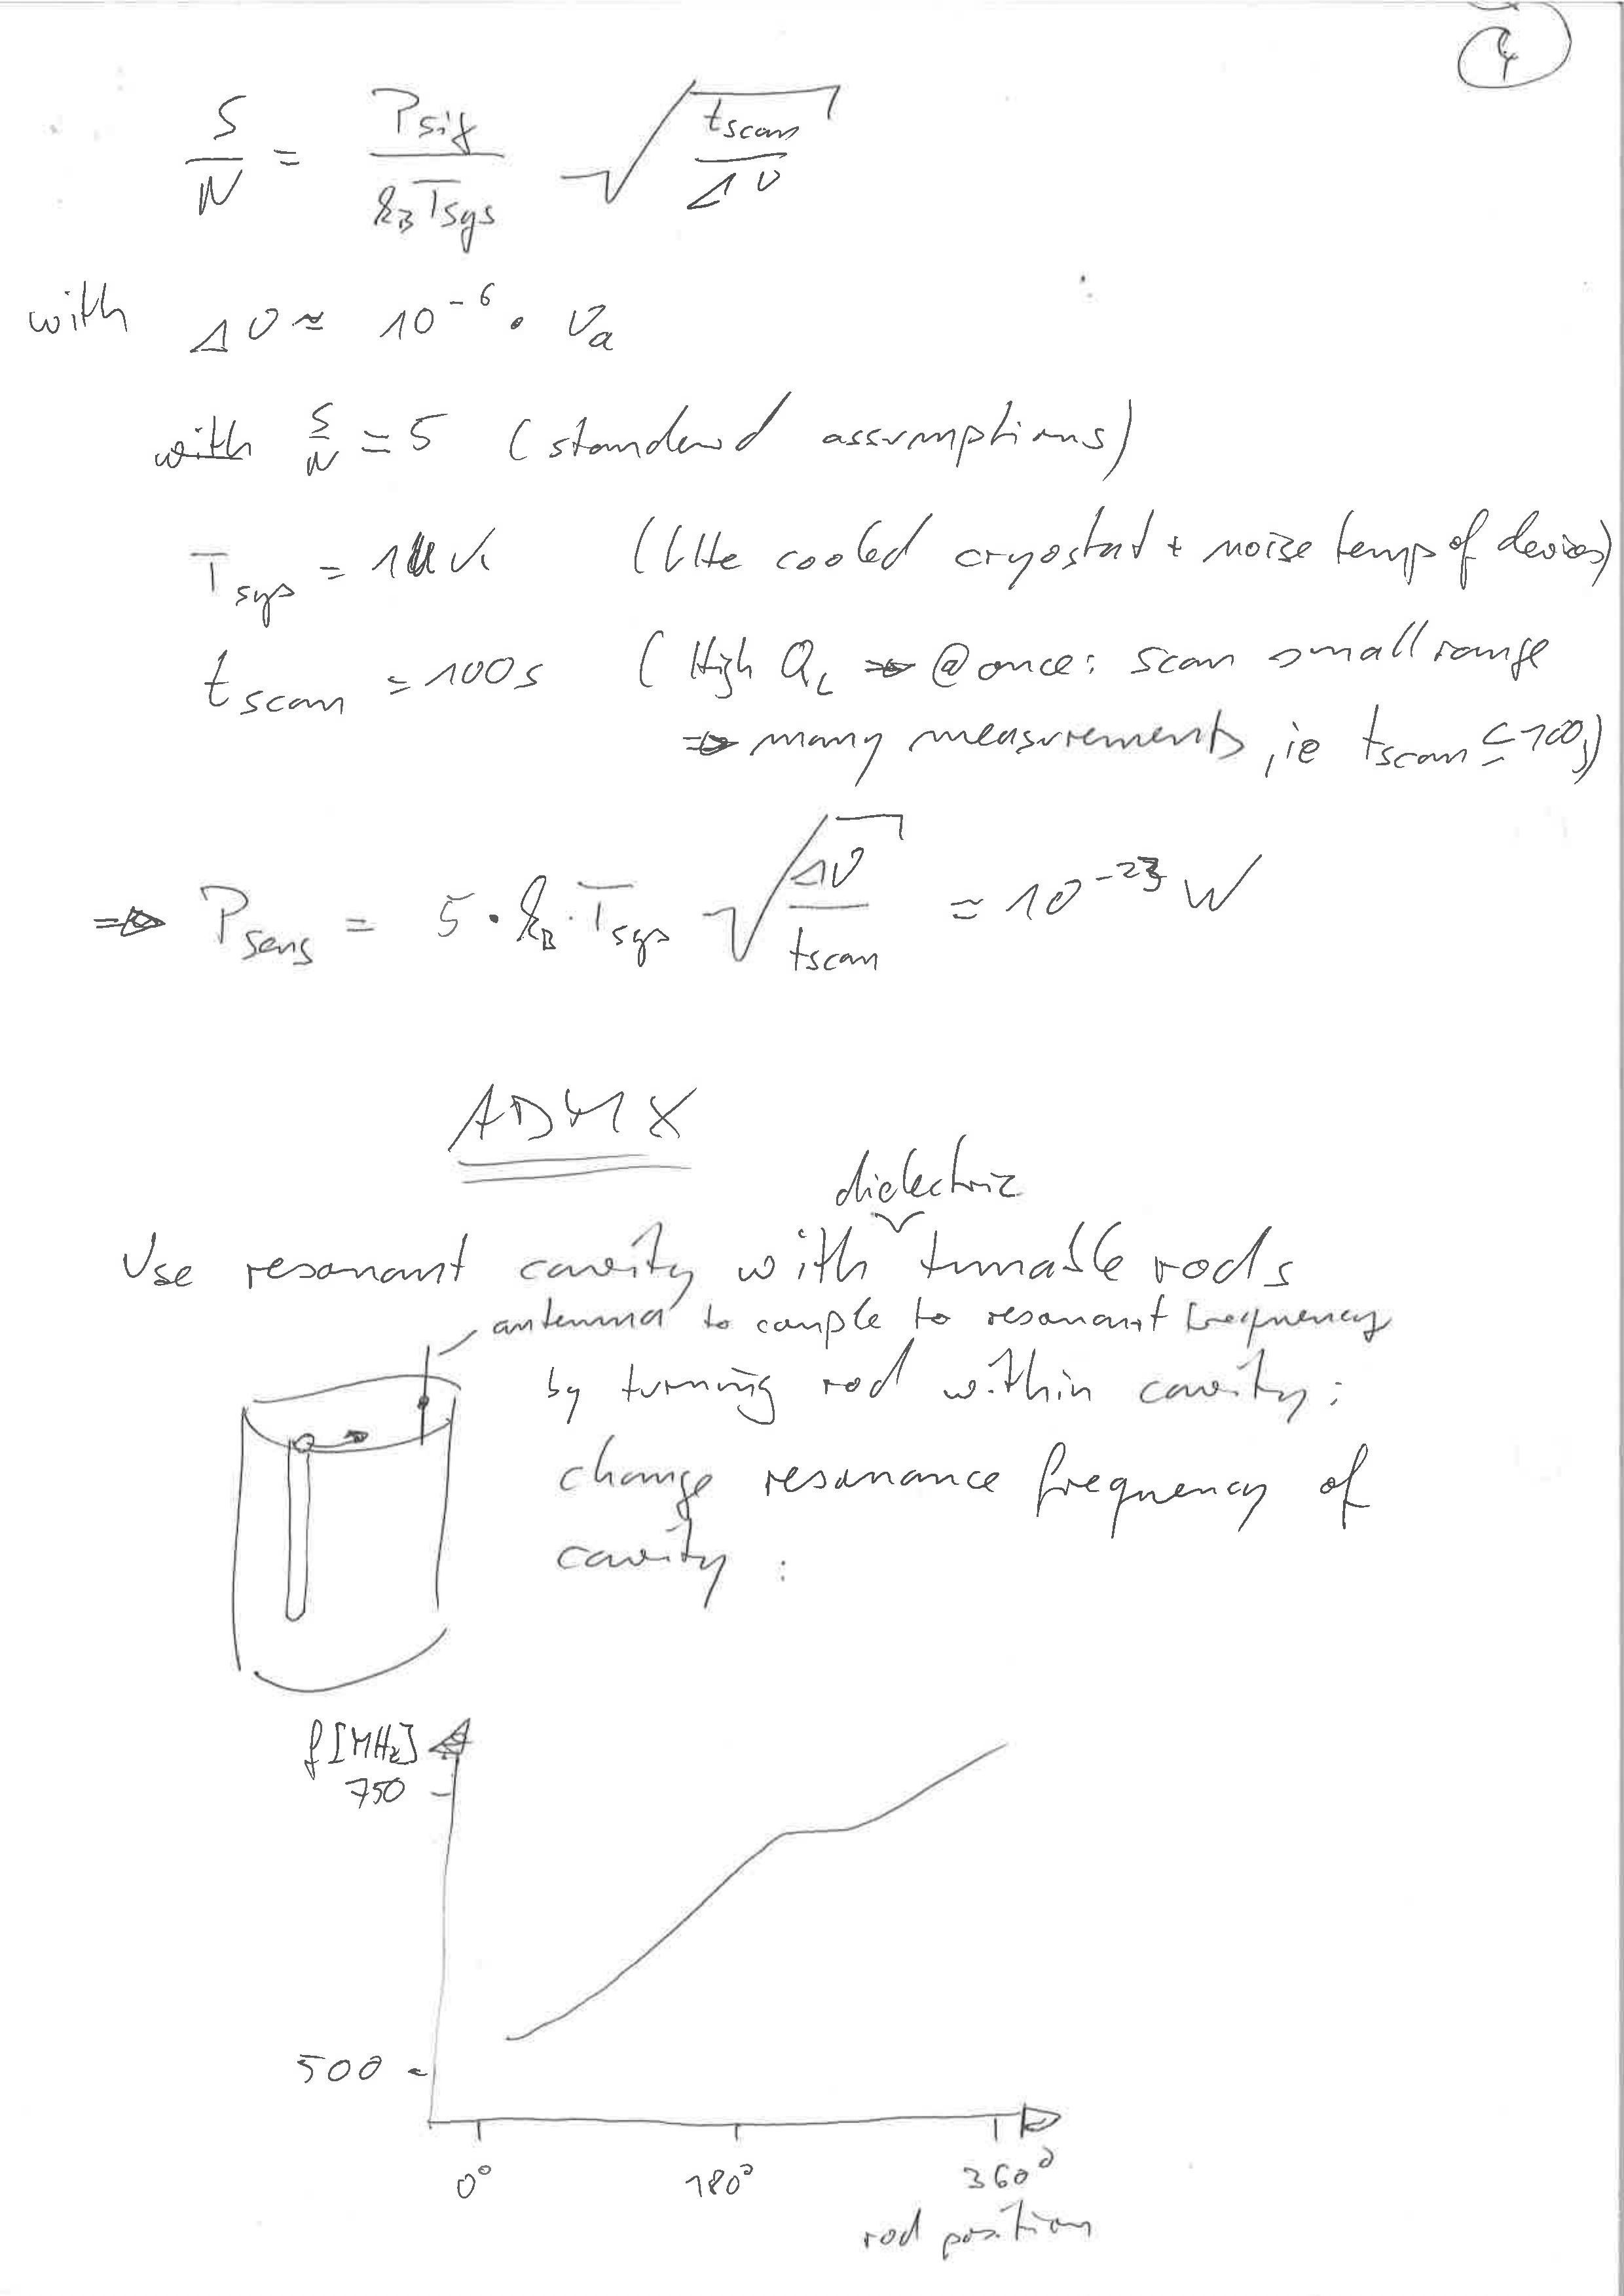 4
S/N = P_sig / k_B T_sys √(t_scan / Δν)
with Δν ≈ 10^-6 · ν_a
with S/N = 5 (standard assumptions)
T_sys = K (LHe cooled cryostat + noise temp of devices)
t_scan = 100s (High Q_L ⇒ @once: scan small range
⇒ many measurements, ie t_scan ≤ 100s)
⇒ P_sens = 5 · k_B · T_sys √(Δν / t_scan) ≈ 10^-23 W
ADMX
dielectric
Use resonant cavity with tunable rods
antenna to couple to resonant frequency
by turning rod within cavity:
change resonance frequency of
cavity:
f [MHz]
750
500
0° 180° 360°
rod position